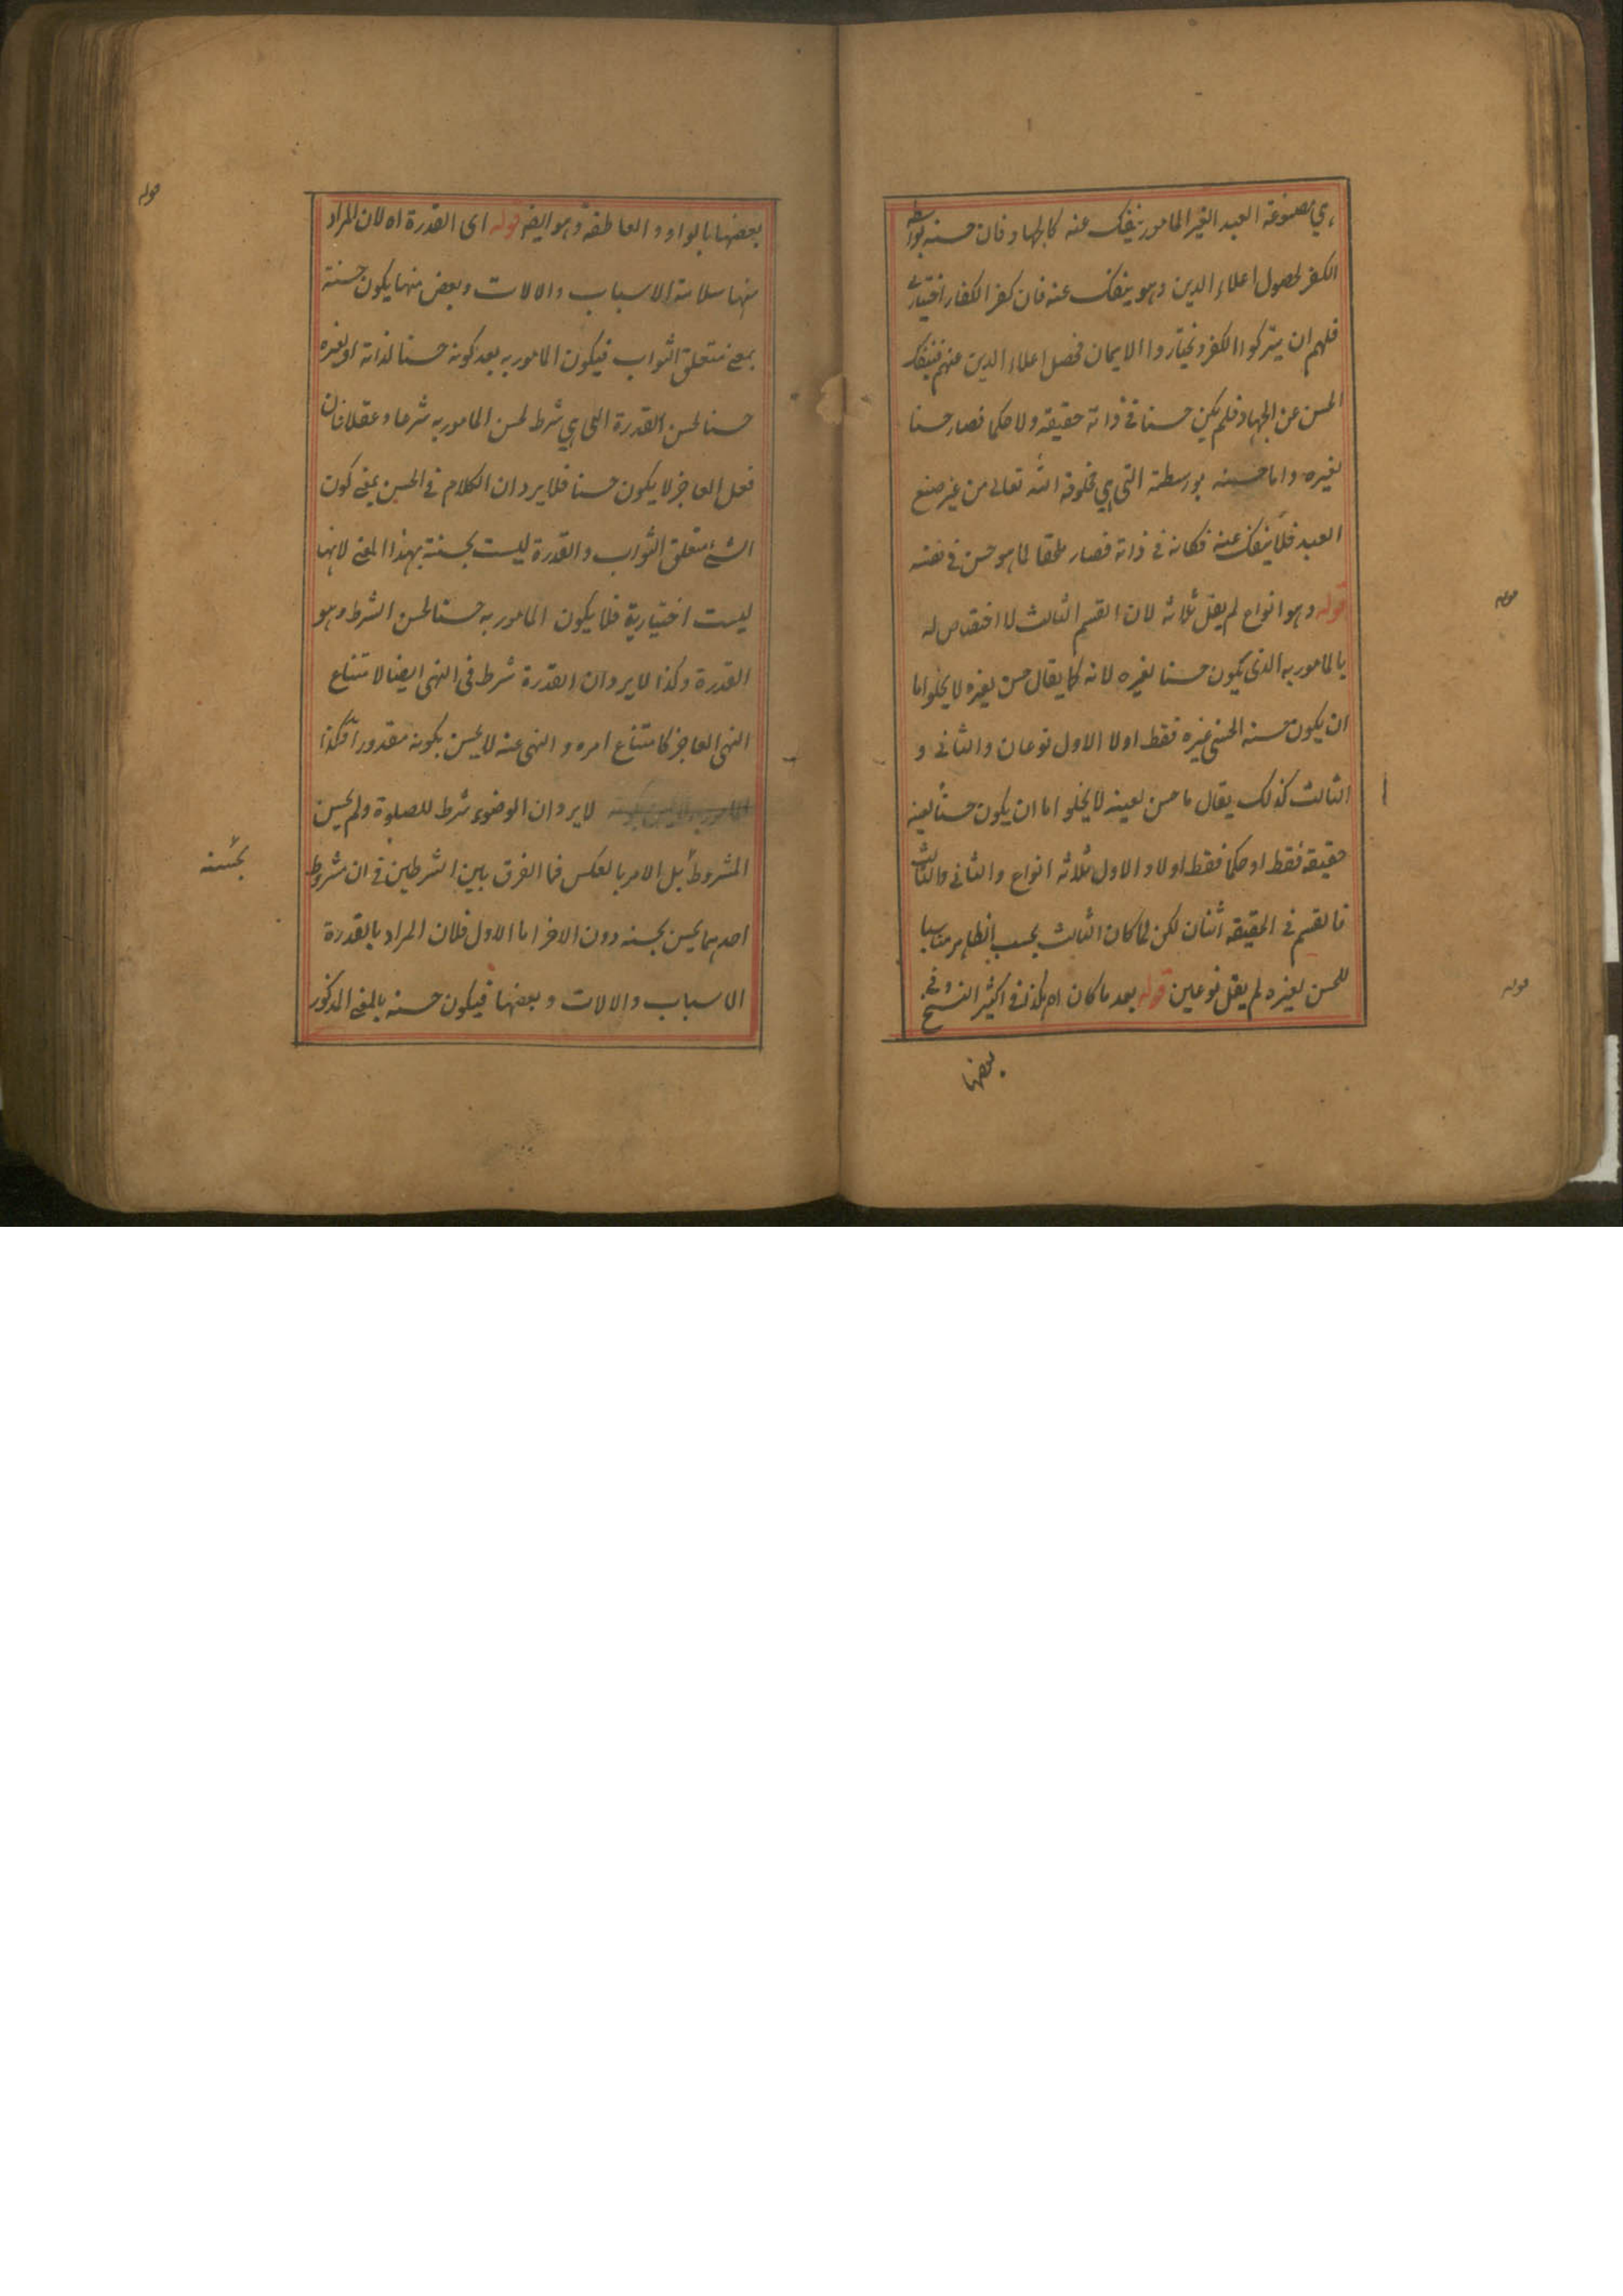 هي مصنوعة العبد الغير المامور ينفك عنه كالجهاد فان حسنه بواسطة
الكفر لحصول اعلاء الدين وهو ينفك عنه فان كفر الكفار اختياري
فلهم ان يتركوا الكفر ويختاروا الايمان فحصل اعلاء الدين عنهم فينفك
الحسن عن الجهاد فلم يكن حسنا في ذاته حقيقة ولا حكما فصار حسنا
لغيره واما حسنه بواسطة التي هي مخلوقة الله تعالى من غير صنع
العبد فلا ينفك عنه فكانه في ذاته فصار ملحقا لما هو حسن في نفسه
قوله وهو انواع لم يقل ثلاثة لان القسم الثالث لا اختصاص له
بالمامور به الذي يكون حسنا لغيره لانه كما يقال حسن لغيره لا يخلو اما
ان يكون حسنه لحسن غيره فقط اولا الاول نوعان والثاني و
الثالث كذلك يقال ما حسن لعينه لا يخلو اما ان يكون حسنا لعينه
حقيقة فقط او حكما فقط اولا والاول ثلاثة انواع والثاني والثالث
فالقسم في الحقيقة اثنان لكن لما كان الثالث بحسب الظاهر مناسبا
للحسن لغيره لم يقل نوعين قوله بعد ما كان اه هكذا في اكثر النسخ وفي
بعضها
قوله
قوله
بعضها بالواو والعاطفة وهو ايضا قوله اى القدرة اه لان المراد
منها سلامة الاسباب والالات وبعض منها يكون حسنة
بمعنى متعلق الثواب فيكون المامور به بعد كونه حسنا لذاته او لغيره
حسنا لحسن القدرة التي هي شرط لحسن المامور به شرعا وعقلا فان
فعل العاجز لا يكون حسنا فلا يرد ان الكلام في الحسن بمعنى كون
الشئ متعلق الثواب والقدرة ليست بحسنة بهذا المعنى لانها
ليست اختيارية فلا يكون المامور به حسنا لحسن الشرط وهو
القدرة وكذا لا يرد ان القدرة شرط في النهى ايضا لامتناع
النهى العاجز كامتناع امره والنهى عنه لا يحسن بكونه مقدورا فكذا
لا يرد ان الوضوء شرط للصلوة ولم يحسن
المشروط بل الامر بالعكس فما الفرق بين الشرطين في ان مشروط
احدهما يحسن بحسنه دون الاخر اما الاول فلان المراد بالقدرة
الاسباب والالات وبعضها فيكون حسنه بالمعنى المذكور
قوله
بحسنه